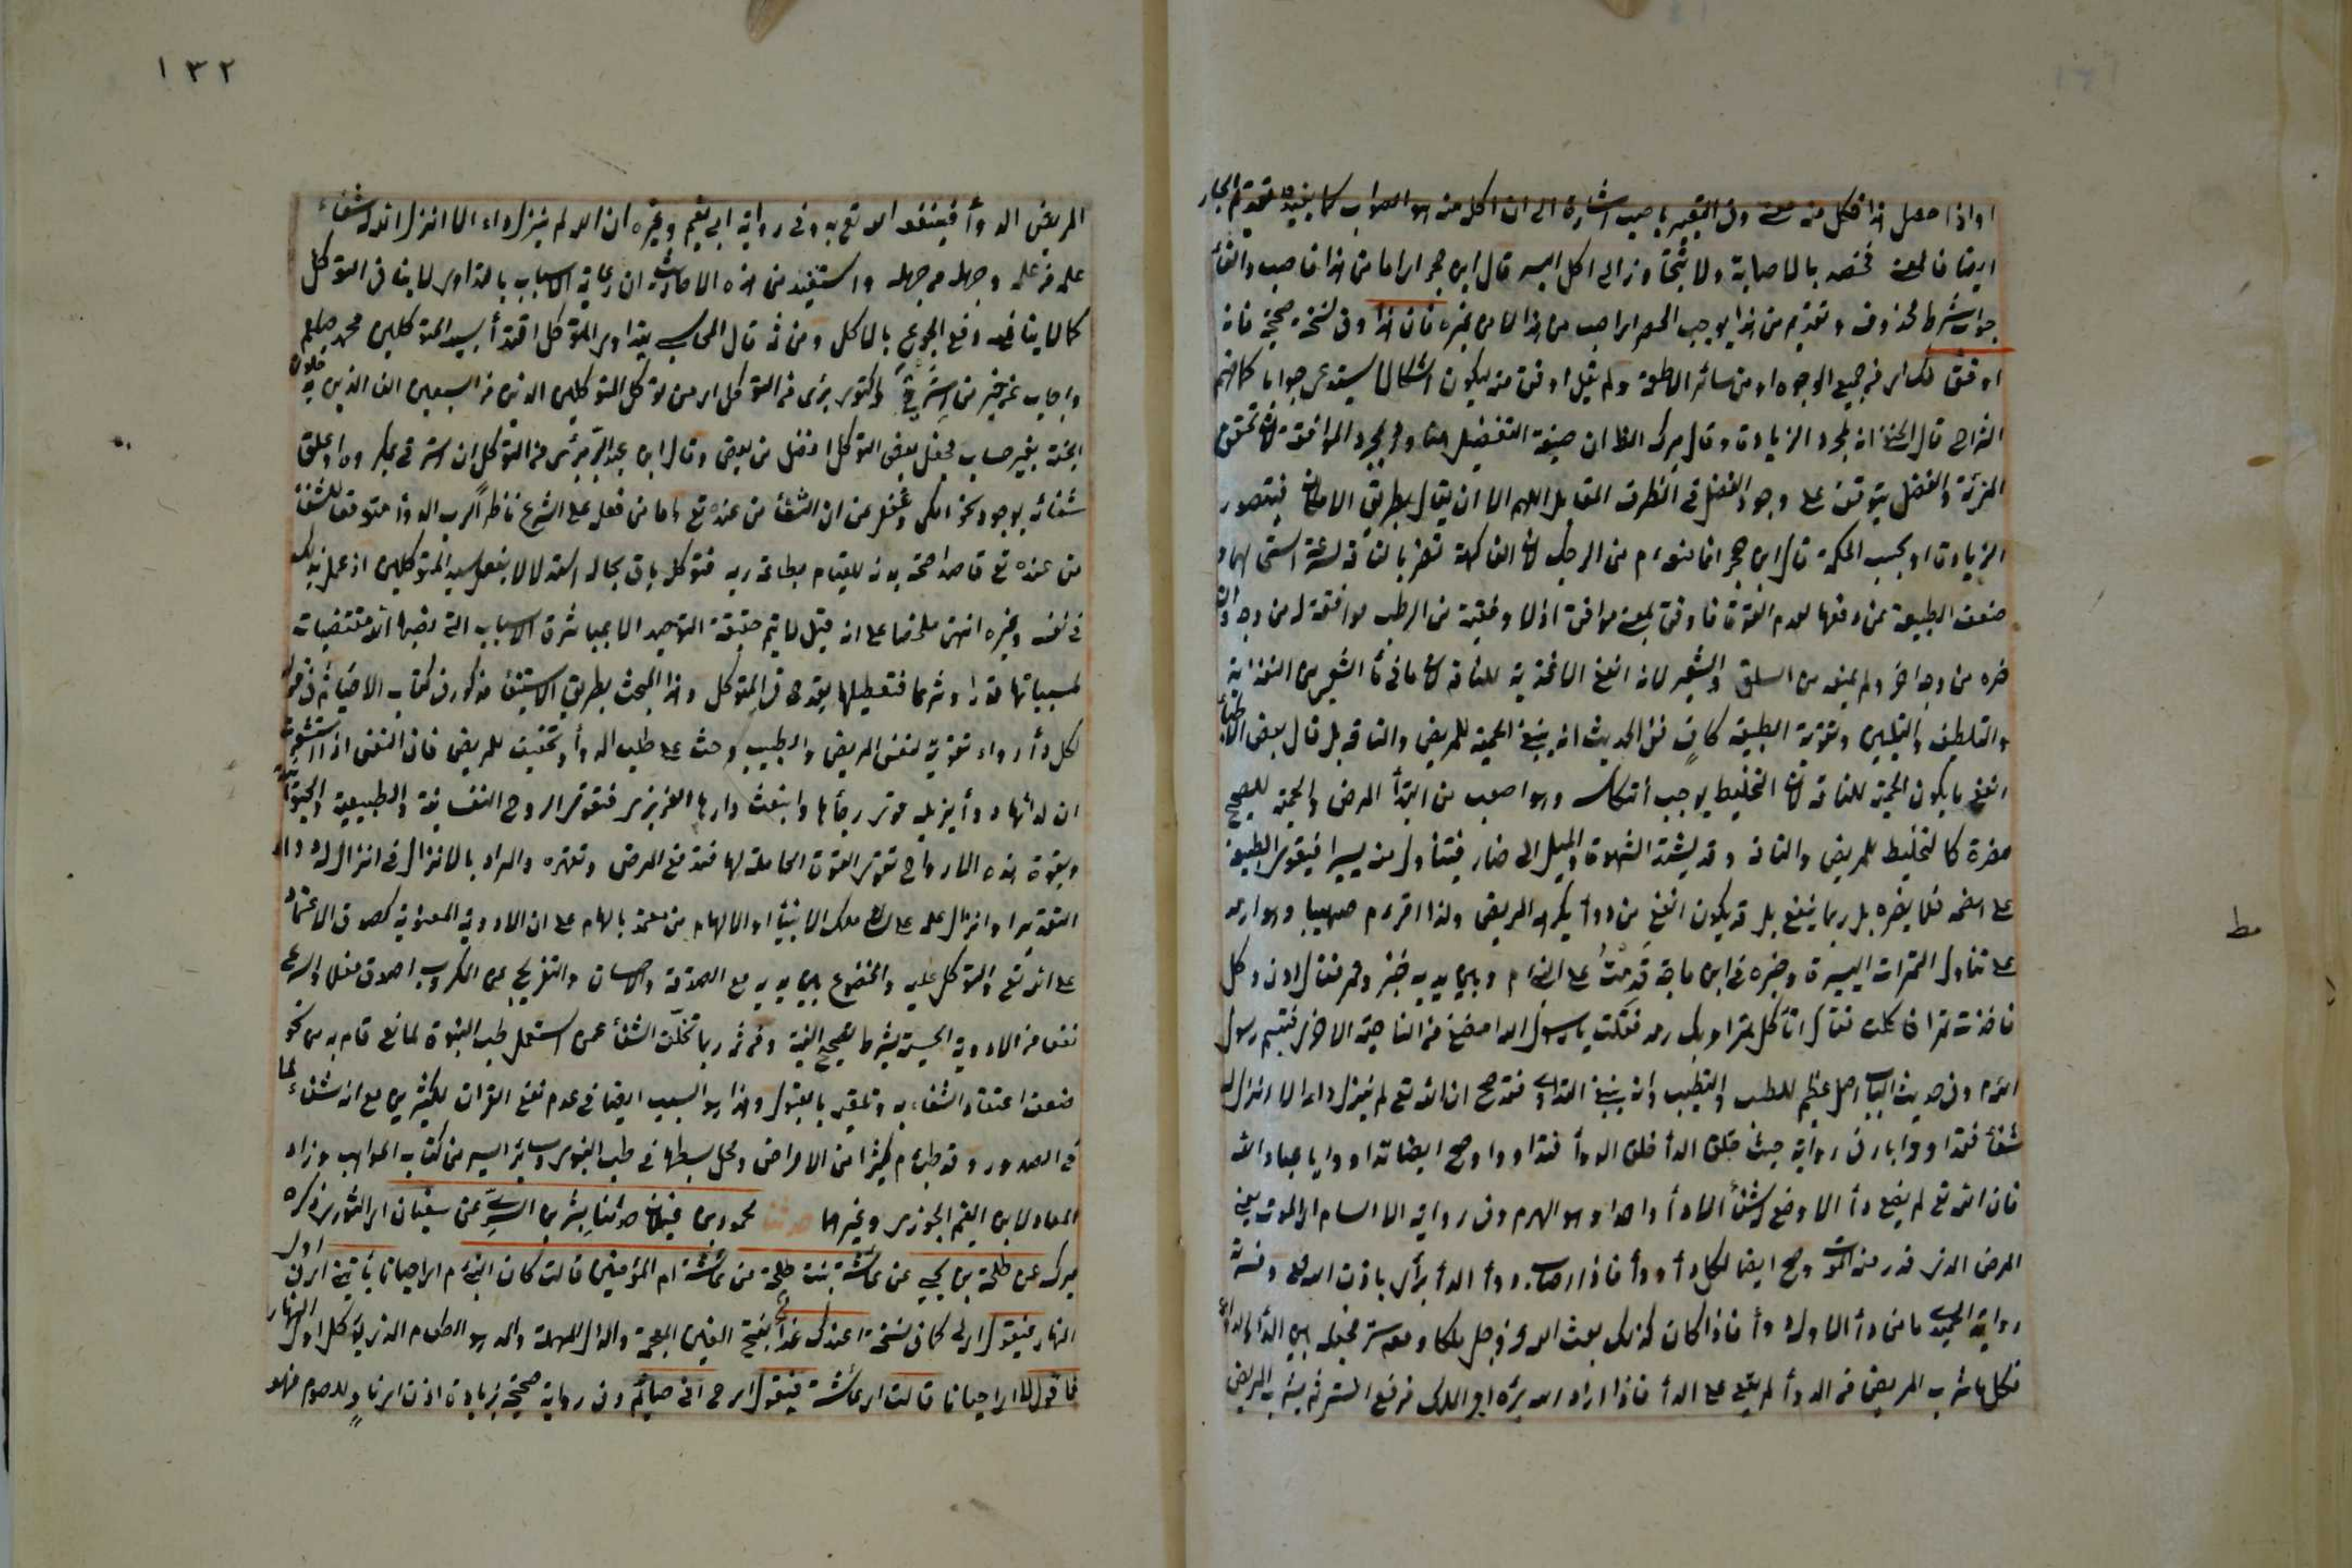 او اذا حصل هذا فكل منه معنا وفى التعبير باصب اشارة الى ان اكل منه هو الصواب كما يفيده تقديم الجار
جواب شرط محذوف وتقديم من هذا يوجب الحصر اى اصب من هذا لا من غيره فان هذا وفى نسخة صحيحة فانه
اوفق لك اى من جميع الوجوه او من سائر الاطعمة
المزية والفضل يتوقف على وجود الفضل فى الطرف المقابل اللهم الا ان يقال بطريق الامكان فيتصور
الزيادة او بحسب الحكمة قال ابن حجر انما منعه م من الرطب لان الفاكهة تضر بالناقه لسرعة استحالتها و
ضعف الطبيعة عن دفعها لعدم القوة فاوفق بمعنى موافق اذ لا اوفقية فى الرطب
ضره من وجه اخر ولم يمنعه من السلق والشعير لانه انفع الاغذية للناقه لان ما فى ماء الشعير من التغذية
والتلطيف والتليين وتقوية الطبيعة كاف ففى الحديث انه ينبغى الحمية للمريض والناقه بل قال بعض الاطباء
انفع ما يكون الحمية للناقه لان التخليط يوجب انتكاسه وهو اصعب من ابتداء المرض والحمية للصحيح
مضرة كالتخليط للمريض والناقه وقد يشتد الشهوة والميل الى ضار فيتناول منه يسيرا فيقوى الطبيعة
على هضمه فلا يضره بل ربما ينفع بل قد يكون انفع من دواء يكرهه المريض ولذا اقر م صهيبا وهو ارمد
على تناول التمرات اليسيرة وخبره فى ابن ماجة قدمت على النبى م وبين يديه خبز وتمر فقال ادن وكل
فاخذت تمرا فاكلت فقال اتأكل تمرا وبك رمد فقلت يا رسول الله امضغ من الناحية الاخرى فتبسم رسول
الله م وفى حديث الباب اصل عظيم للطب والتطبب وانه ينبغى التداوى فقد صح ان الله تع لم ينزل داء الا انزل له
شفاء فتداووا وفى رواية حيث خلق الداء خلق الدواء فتداووا وصح ايضا تداووا يا عباد الله
فان الله تع لم يضع داء الا وضع له شفاء الا داء واحدا وهو الهرم وفى رواية الا السام اى الموت يعنى
المرض الذى قدر منه الموت وصح ايضا لكل داء دواء فاذا اصاب دواء الداء برأ باذن الله تع وفسرته
رواية الحميدى ما من داء الا وله دواء فاذا كان كذلك بعث الله عز وجل ملكا ومعه ستر فجعله بين الداء والدواء
فكلما شرب المريض من الدواء لم يقع على الداء فاذا اراد الله برءه امر الملك فرفع الستر ثم يشرب المريض
مط
١٣٢
المريض الدواء فينفعه الله تع به وفى رواية ابى نعيم وغيره ان الله لم ينزل داء الا انزل الله له شفاء
علمه من علمه وجهله من جهله واستفيد من هذه الاحاديث ان رعاية الاسباب بالتداوى لا ينافى التوكل
كما لا ينافيه دفع الجوع بالاكل ومن ثم قال المحاسبى يتداوى المتوكل اقتداء بسيد المتوكلين محمد صلعم
واجاب عن خبر من استرقى واكتوى برئ من التوكل اى من توكل المتوكلين الذين من السبعين الف الذين يدخلون
الجنة بغير حساب فجعل بعض التوكل افضل من بعض وقال ابن عبد البر برئ من التوكل ان استرقى بمكروه او علق
شفاءه بوجود نحو الكى وغفل عن ان الشفاء من عنده تع واما من فعله على الشرع ناظرا لرب الدواء متوقعا للشفاء
من عنده تع قاصدا صحة بدنه للقيام بطاعة ربه فتوكله باق بحاله استدلالا بفعل سيد المتوكلين اذ عمل بذلك
فى نفسه وغيره انتهى ملخصا على انه قيل لا يتم حقيقة التوحيد الا بمباشرة الاسباب التى نصبها الله مقتضيات
لمسبباتها قدرا وشرعا فتعطيلها يقدح فى التوكل وهذا المبحث بطريق الاستيفاء مذكور فى كتاب الاحياء ثم فى قوله
لكل داء دواء تقوية لنفس المريض والطبيب وحث على طلب الدواء وتخفيف للمريض فان النفس اذا استشعرت
ان لدائها دواء يزيله قوى رجاءها وانبعث حارها الغريزى فتقوى الروح النفسانية والطبيعية والحيوانية
وبقوة هذه الارواح تقوى القوى الحاملة لها فتدفع المرض وتقهره والمراد بالانزال فى انزل له دواء
التقدير او انزال علمه على لسان ملك الانبياء او الالهام من يعتد بالهامه على ان الادوية المعنوية كصدق الاعتماد
على الله تع والتوكل عليه والخضوع بين يديه مع الصدقة والاحسان والتفريج عن المكروب اصدق فعلا واسرع
نفعا من الادوية الحسية بشرط تصحيح النية ومن ثم ربما تخلف الشفاء عمن استعمل طب النبوة لمانع قام به من نحو
ضعف اعتقاد الشفاء به وتلقيه بالقبول وهذا هو السبب ايضا فى عدم نفع القرآن للكثيرين مع انه شفاء لما
فى الصدور وقد طب م كثيرا من الامراض ومحل بسطها فى طب النبوى وسائر السير من كتاب المواهب وزاد
المعاد لابن القيم الجوزى وغيرهما حدثنا محمود بن غيلان حدثنا بشر بن السرى عن سفيان اى الثورى ذكره
ميرك عن طلحة بن يحيى عن عائشة بنت طلحة عن عائشة ام المؤمنين قالت كان النبى م اى احيانا يأتينى اى فى اول
النهار فيقول اى لى كما فى نسخة اعندك غداء بفتح الغين المعجمة والدال المهملة والمد هو الطعام الذى يؤكل اول النهار
فاقول لا اى احيانا قالت اى عائشة فيقول اى ح انى صائم وفى رواية صحيحة بزيادة اذن اى ناو للصوم فهو